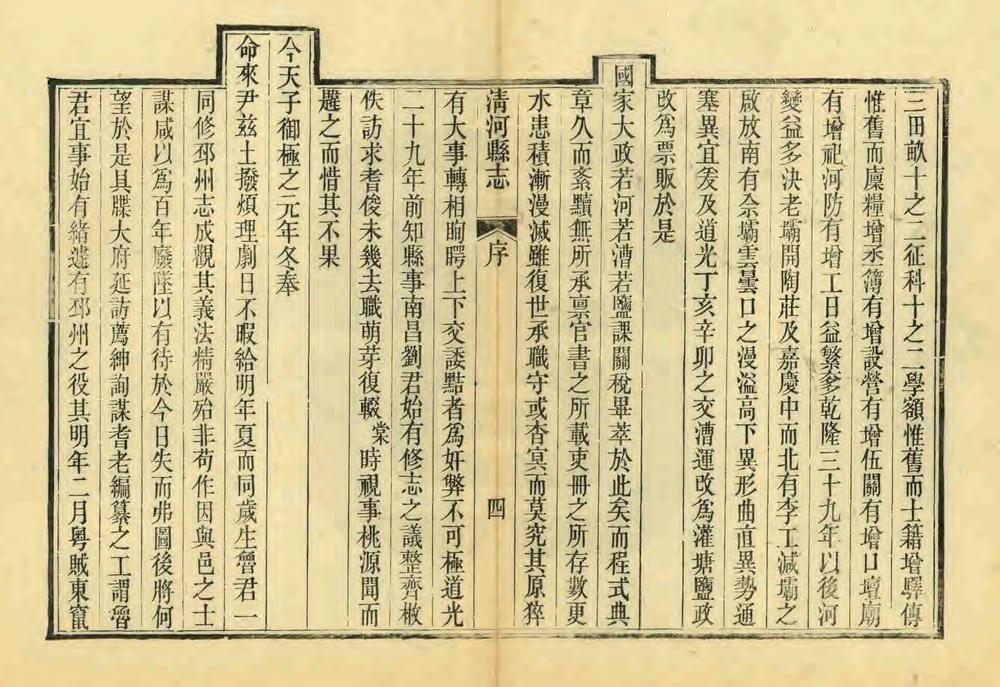 三田畝十之二征科十之二學額惟舊而士籍增驛傳
惟舊而廩糧增丞簿有增設營有增伍關有增口壇廟
有增祀河防有增工日益繁奓乾隆三十九年以後河
變益多決老壩開陶莊及嘉慶中而北有李工減壩之
啟放南有佘壩雲曇口之漫溢高下異形曲直異勢通
塞異宜爰及道光丁亥辛卯之交漕運改為灌塘鹽政
改為票販於是
國家大政若河若漕若鹽課關稅畢萃於此矣而程式典
章久而紊黷無所承禀官書之所載吏冊之所存數更
水患積漸漫滅雖復世承職守或杳冥而莫究其原猝
有大事轉相眴睶上下交諉黠者為奸弊不可極道光
二十九年前知縣事南昌劉君始有修志之議整齊散
佚訪求耆俊未幾去職萌芽復輟棠時視事桃源聞而
韙之而惜其不果
今天子御極之元年冬奉
命來尹茲土撥煩理劇日不暇給明年夏而同歲生曾君一
同修邳州志成觀其義法精嚴殆非苟作因與邑之士
謀咸以為百年廢墜以有待於今日失而弗圖後將何
望於是具牒大府延訪薦紳詢謀耆老編纂之工謂曾
君宜事始有緒遽有邳州之役其明年二月粵賊東竄
清河縣志 序 四